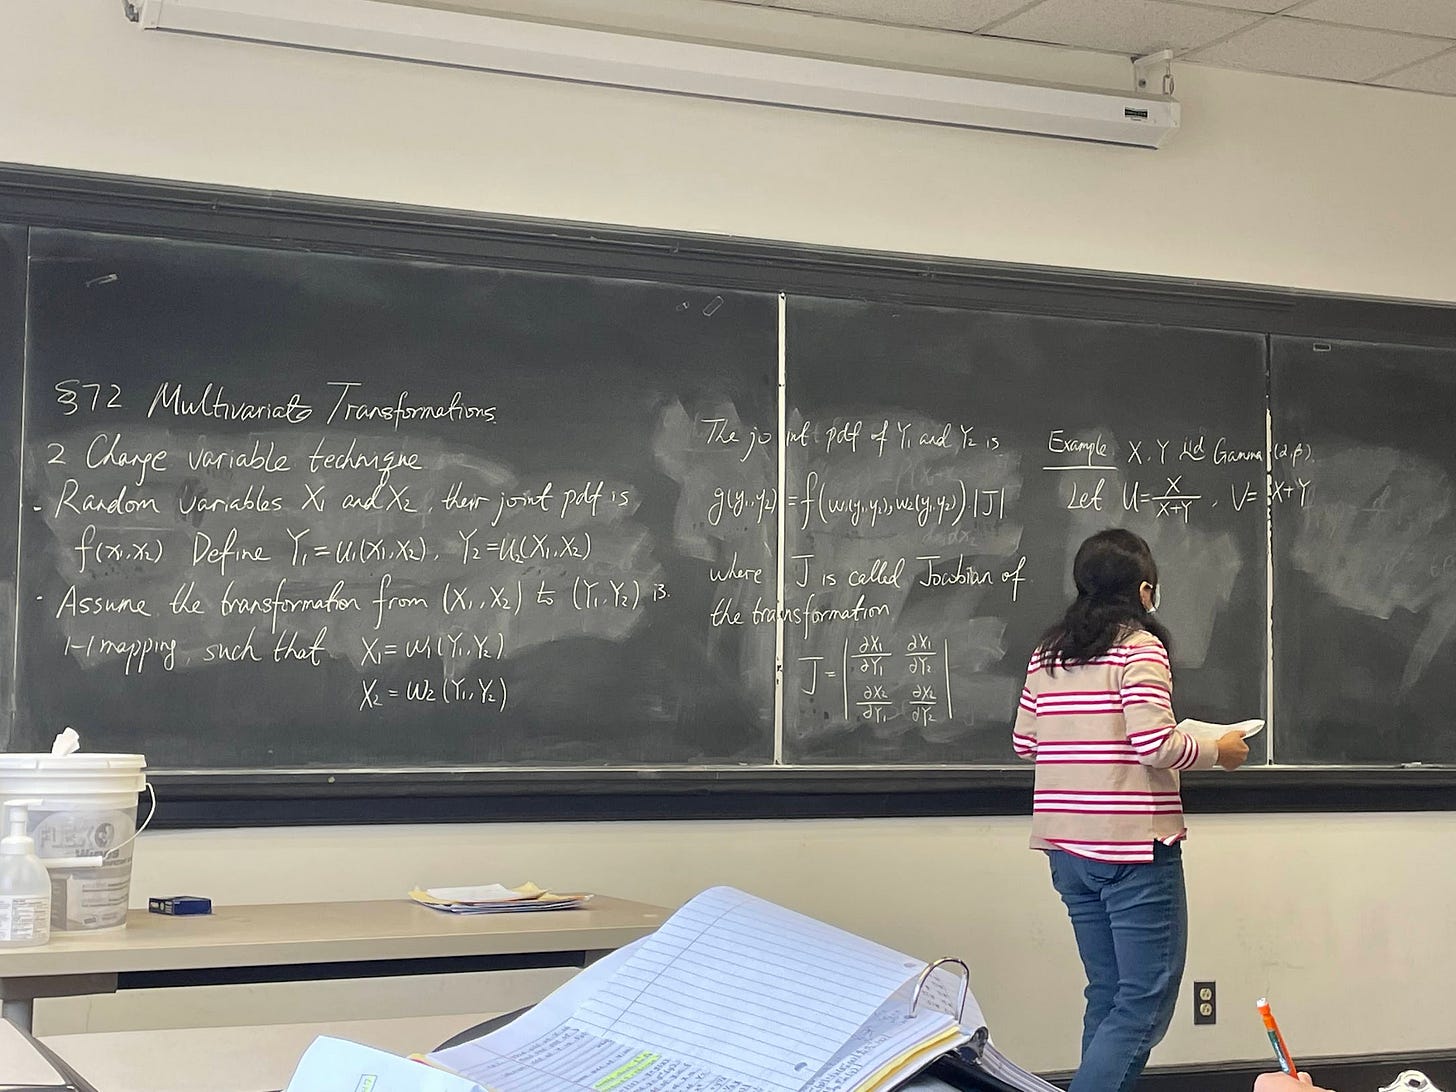 §7.2 Multivariate Transformations
2 Change variable technique
- Random variables X₁ and X₂, their joint pdf is
f(x₁,x₂) Define Y₁=u₁(X₁,X₂), Y₂=u₂(X₁,X₂)
· Assume the transformation from (X₁,X₂) to (Y₁,Y₂) is
1-1 mapping, such that X₁=w₁(Y₁,Y₂)
X₂=w₂(Y₁,Y₂)
The joint pdf of Y₁ and Y₂ is
g(y₁,y₂)=f(w₁(y₁,y₂),w₂(y₁,y₂))·|J|
where J is called Jacobian of
the transformation
J = | ∂X₁/∂Y₁ ∂X₁/∂Y₂ |
| ∂X₂/∂Y₁ ∂X₂/∂Y₂ |
Example X,Y iid Gamma(α,β).
Let U=X/(X+Y), V=X+Y